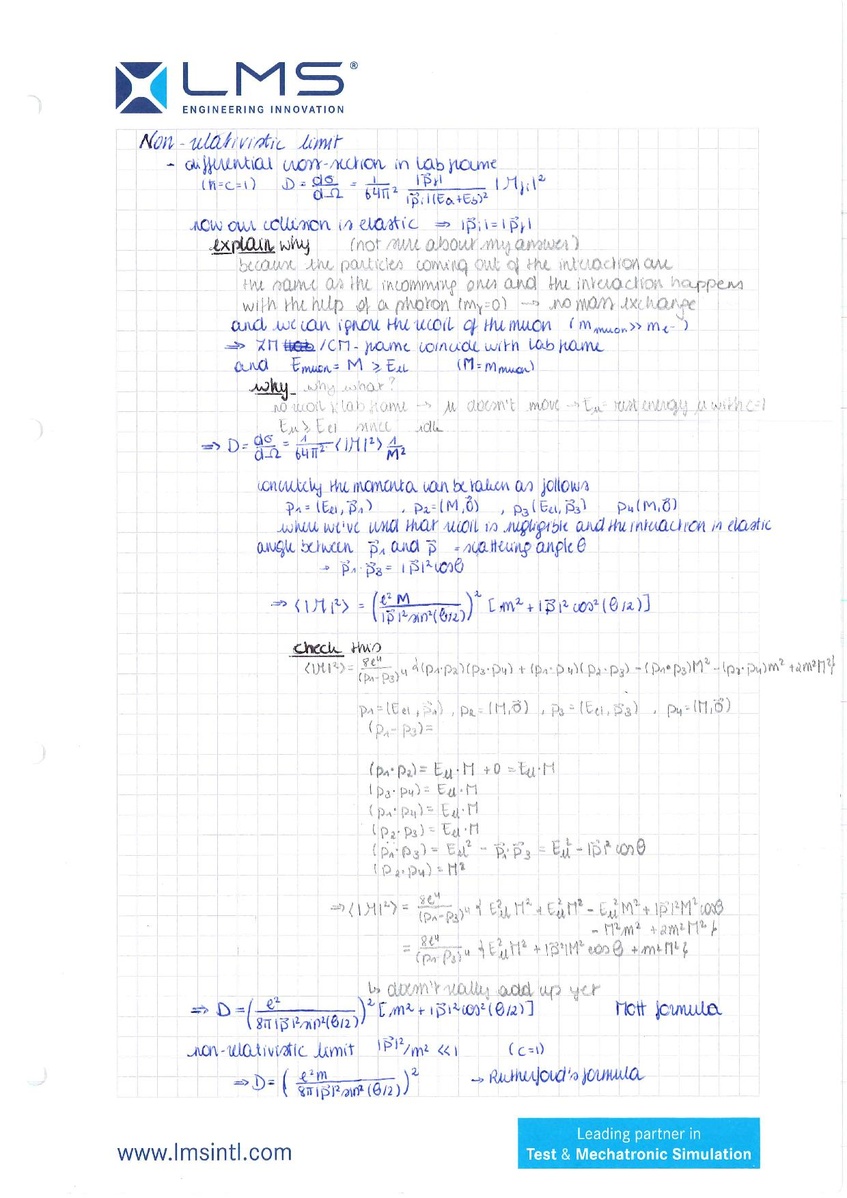 LMS®
ENGINEERING INNOVATION
Non-relativistic limit
- differential cross-section in lab frame
(ħ=c=1) D = dσ/dΩ = 1/64π² |p⃗f|/|p⃗i|(Ea+Eb)² |Mfi|²
now our collision is elastic ⇒ |p⃗i|=|p⃗f|
explain why (not sure about my answer)
because the particles coming out of the interaction are
the same as the incomming ones and the interaction happens
with the help of a photon (mγ=0) → no mass exchange
and we can ignore the recoil of the muon (m muon >> me-)
⇒ ZM /CM-frame coincide with lab frame
and Emuon = M ≥ Eel (M = mmuon)
why why what?
no recoil & lab frame → μ doesn't move → Eμ = rest energy μ with c=1
Eμ ≥ Eel since idk
⇒ D = dσ/dΩ = 1/64π² ⟨|M|²⟩ 1/M²
concretely the momenta can be taken as follows
p1=(Eel,p⃗1) , p2=(M,0⃗) , p3(Eel,p⃗3) p4(M,0⃗)
where we've used that recoil is negligible and the interaction is elastic
angle between p⃗1 and p⃗ = scattering angle θ
→ p⃗1·p⃗3 = |p⃗|²cosθ
⇒ ⟨|M|²⟩ = (e²M/|p⃗|²sin²(θ/2))² [m²+|p⃗|²cos²(θ/2)]
check this
⟨|M|²⟩ = 8e⁴/(p1-p3)⁴ {(p1·p2)(p3·p4) + (p1·p4)(p2·p3) - (p1·p3)M² - (p2·p4)m² + 2m²M²}
p1=(Eel,p⃗1) , p2=(M,0⃗) , p3=(Eel,p⃗3) , p4=(M,0⃗)
(p1-p3)=
(p1·p2) = Eel·M +0 = Eel·M
(p3·p4) = Eel·M
(p1·p4) = Eel·M
(p2·p3) = Eel·M
(p1·p3) = Eel² - p⃗1·p⃗3 = Eel² - |p⃗|²cosθ
(p2·p4) = M²
⇒ ⟨|M|²⟩ = 8e⁴/(p1-p3)⁴ { Eel²M² + Eel²M² - Eel²M² + |p⃗|²M²cosθ
- M²m² + 2m²M² }
= 8e⁴/(p1-p3)⁴ { Eel²M² + |p⃗|²M²cosθ + m²M² }
↳ doesn't really add up yet
⇒ D = (e²/8π|p⃗|²sin²(θ/2))² [m²+|p⃗|²cos²(θ/2)] Mott formula
non-relativistic limit |p⃗|²/m² << 1 (c=1)
⇒ D = (e²m/8π|p⃗|²sin²(θ/2))² → Rutherford's formula
www.lmsintl.com
Leading partner in
Test & Mechatronic Simulation